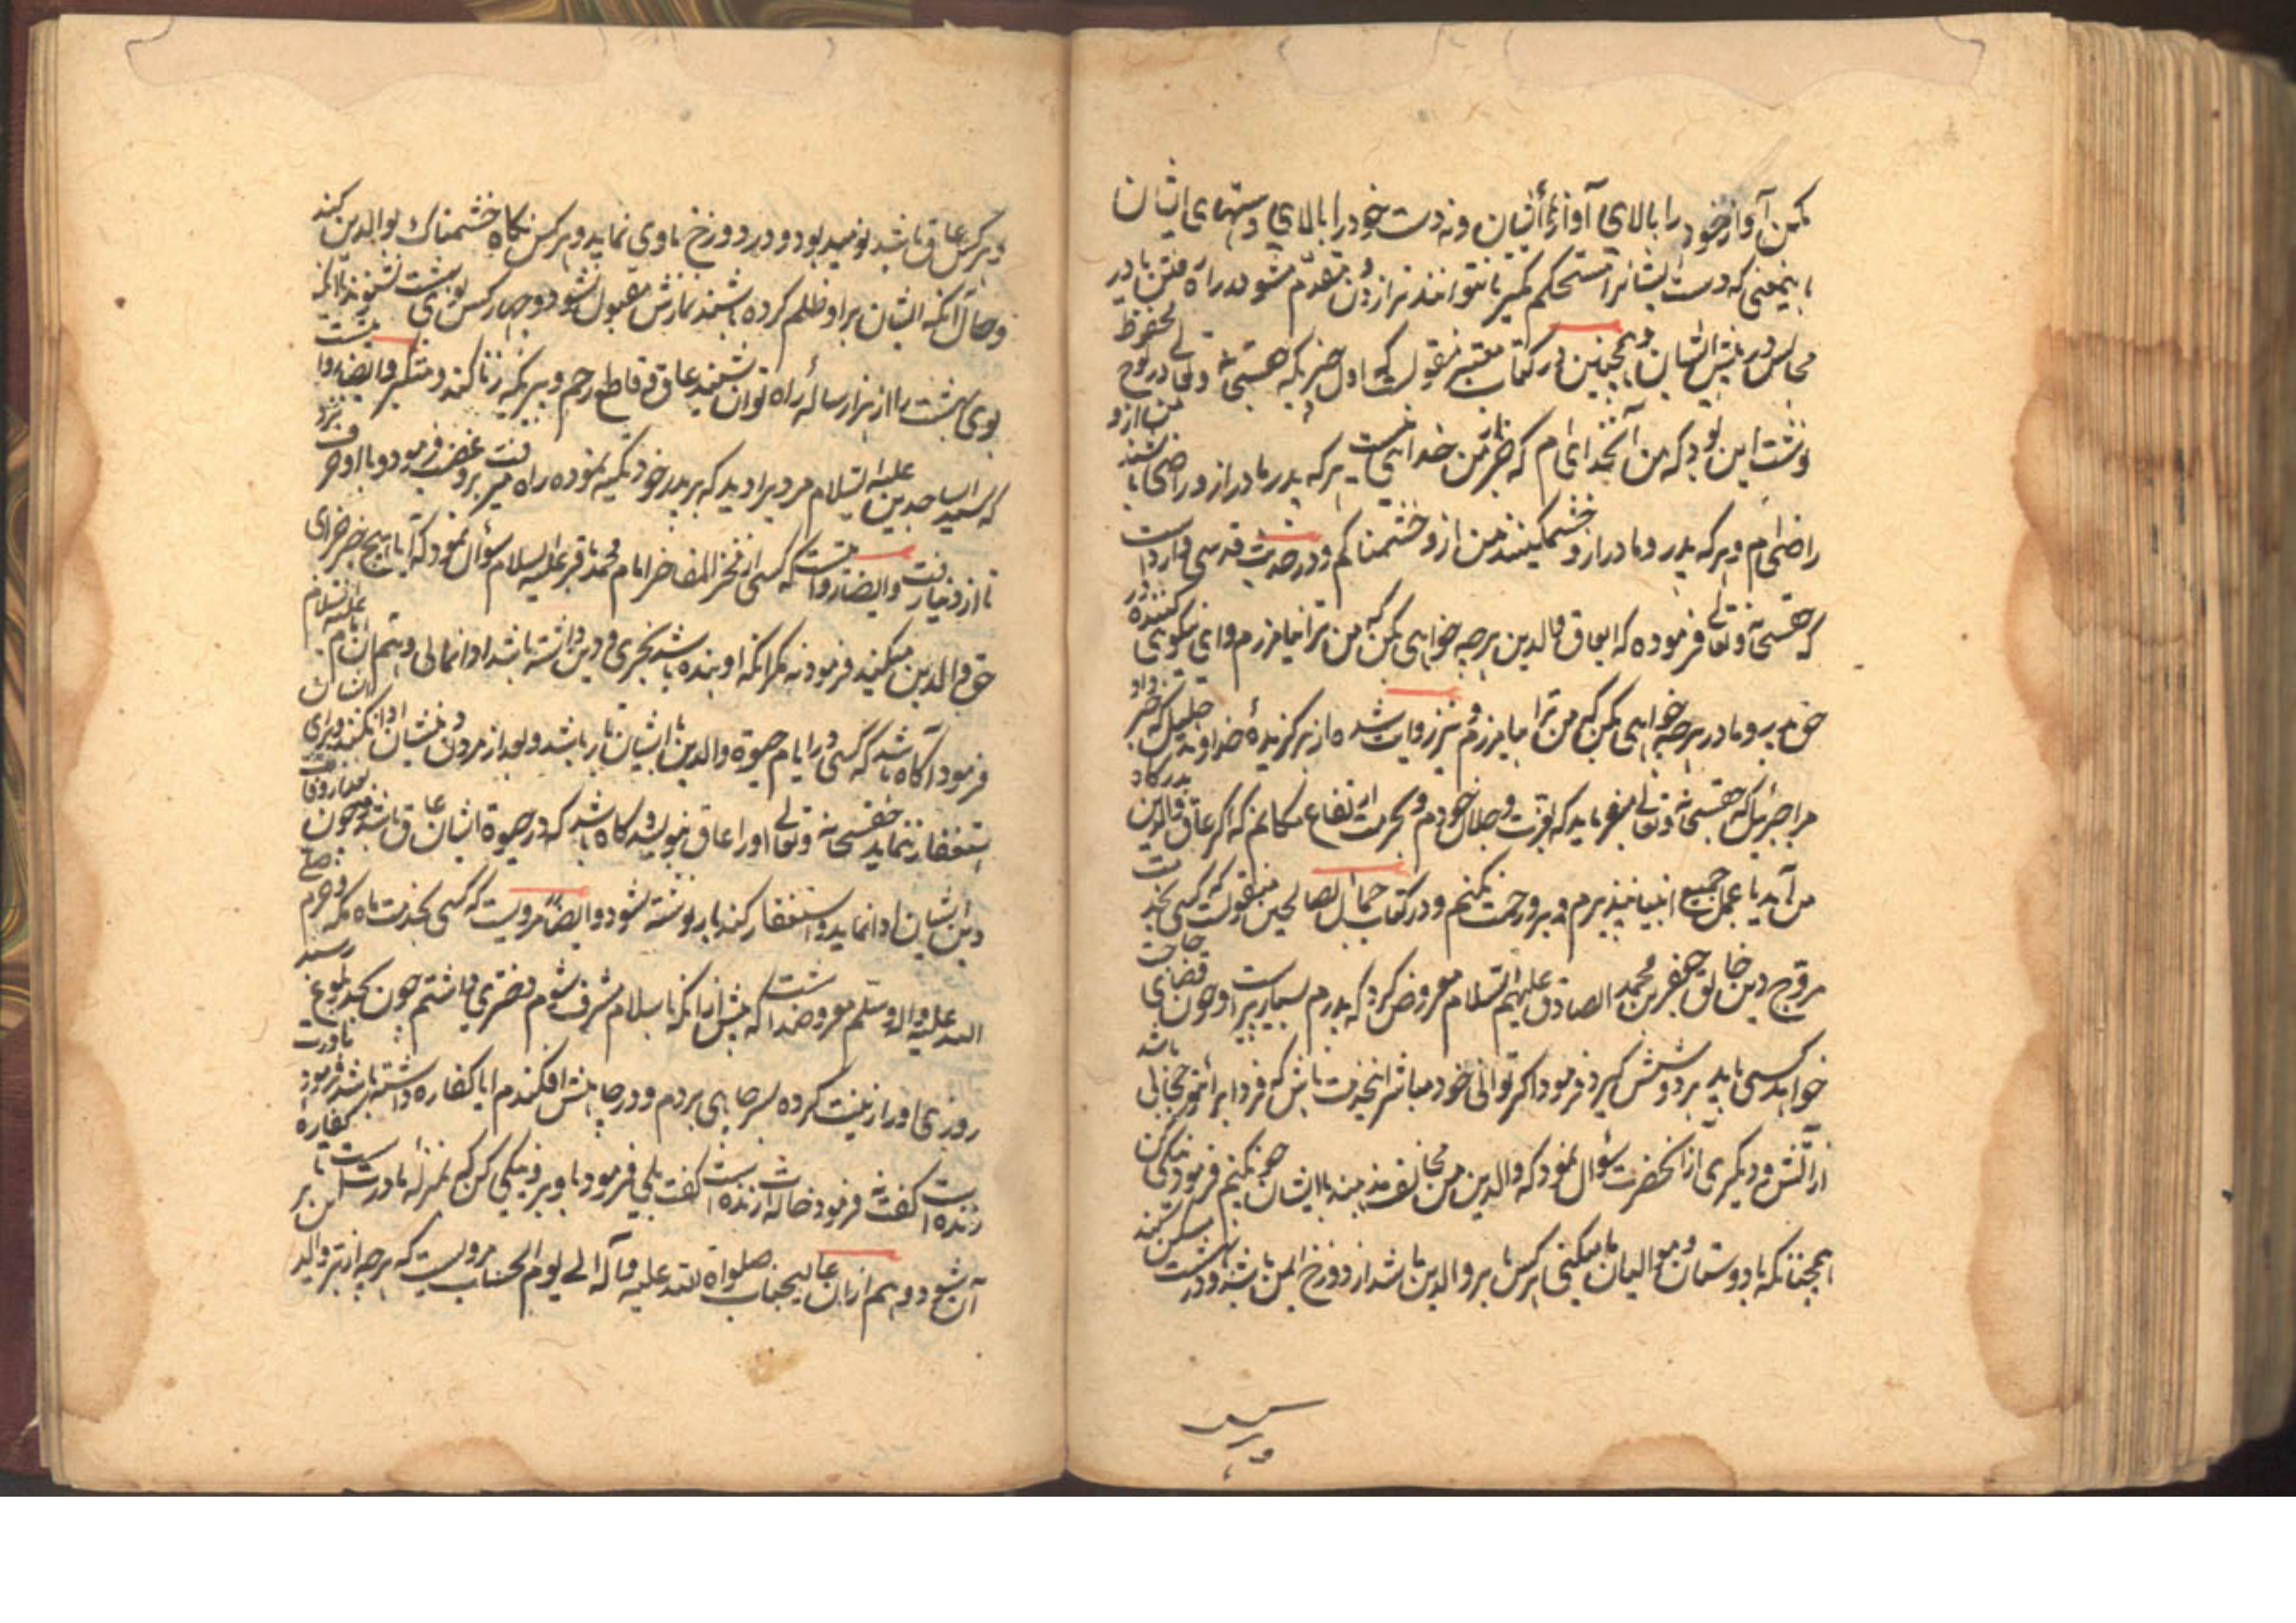 مکن آواز خود را بالای آواز ایشان و نه دست خود را بالای دستهای ایشان
باینمعنی که دست ایشانرا مستحکم مگیر تا نتوانند از تو و متقدم مشو در راه رفتن یا در
مجالس در پیش ایشان و همچنین در کتاب معتبر منقولست که اول چیزیکه حقسبحانه و تعالی در لوح محفوظ
نوشت این بود که من آنخدای ام که جز من خدائی نیست هر که پدر و مادر ازو راضی باشند من ازو
راضی ام و هر که پدر و مادر ازو خشمگینند من ازو خشمناکم و در حدیث قدسی وارد است
که حقسبحانه و تعالی فرموده که ای عاق والدین هر چه خواهی بکن که من ترا نیامرزم و ای نیکوی کننده در
حق پدر و مادر هر چه خواهی بکن که من ترا بیامرزم و نیز روایت شده از برگزیدهٔ خداوند جلیل که خبر داد
مرا جبرئیل که حقسبحانه و تعالی میفرماید که بعزت و جلال خودم و بحرمت ارتفاع مکانم که اگر عاق والدین بدرگاه
من آید با عمل جمیع انبیا نپذیرم و برو رحمت نکنم و در کتاب خصائل الصالحین منقولست که کسی بخدمت
مروج دین خالق جعفر بن محمد الصادق علیهم السلام معروض کرد که پدرم بسیار پیر است و چون قضای حاجت
خواهد کسی باید بر دوشش گیرد فرمود اگر توانی خود مباشر اینخدمت باش که فردا برای تو حجابی باشد
از آتش و دیگری از آنحضرت سؤال نمود که والدین من مخالف مذهبند با ایشان چون کنیم فرمود نیکی کن
همچنانکه با دوستان و موالیان ما میکنی هر کس با بر والدین باشد از دوزخ ایمن باشد و در بهشت مسکن کند
و هر کس
و هر کس عاق باشد نومید بود و در دوزخ ماوی نماید و هر کس نگاه خشمناک بوالدین کند
و حال آنکه ایشان بر او ظلم کرده باشند نمازش مقبول نشود و چهار کس بوی بهشت نشنوند با آنکه
بوی بهشت را از هزار ساله راه توان شنید عاق و قاطع رحم و پیریکه زنا کند و متکبر و ایضا روایتست
که سید الساجدین علیه السلام مردیرا دید که بر پدر خود تکیه نموده راه میرفت برو غضب فرمود و با او حرف نزد
تا از دنیا رفت و ایضا روایتست که کسی از فخر المفاخر امام محمد باقر علیه السلام سؤال نمود که آیا هیچ چیز جزای
حق والدین میکند فرمود نه مگر آنکه او بنده باشد بخری و دین داشته باشد ادا نمائی و هم آن امام علیه السلام
فرمود آگاه باشد که کسی در ایام حیوة والدین بایشان بار باشد و بعد از مردن دین ایشان ادا نکند و برای ایشان
استغفار ننماید حقسبحانه و تعالی او را عاق نویسد و گاه باشد که در حیوة ایشان عاق باشد و چون بعد از وفات
دین ایشان ادا نماید و استغفار کند بار نوشته شود و ایضا مرویست که کسی بخدمت ماه مکه و حرم صلی
الله علیه و اله و سلم معروضداشت که پیش از آنکه باسلام مشرف شوم دختری داشتم چون بحد بلوغ رسید
روزی او را زینت کرده بسر چاهی بردم و در چاهش افکندم ایا کفاره داشته باشد فرمود مادرت
زنده است گفت نه فرمود خاله ات زنده است گفت بلی فرمود با وی نیکی کن که بمنزله مادرتست این کفاره
آن شود و هم از آن عالیجناب صلواة الله علیه و آله الی یوم الحساب مرویست که هر چه از بر والد